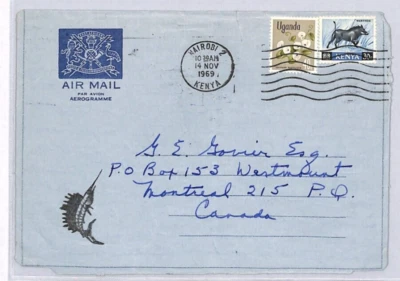 Uganda
KENYA
30
NAIROBI 2
10 19AM
14 NOV
1969
KENYA
AIR MAIL
PAR AVION
AEROGRAMME
G. E. Govier Esq.
P.O Box 153 Westmount
Montreal 215 P.Q.
Canada